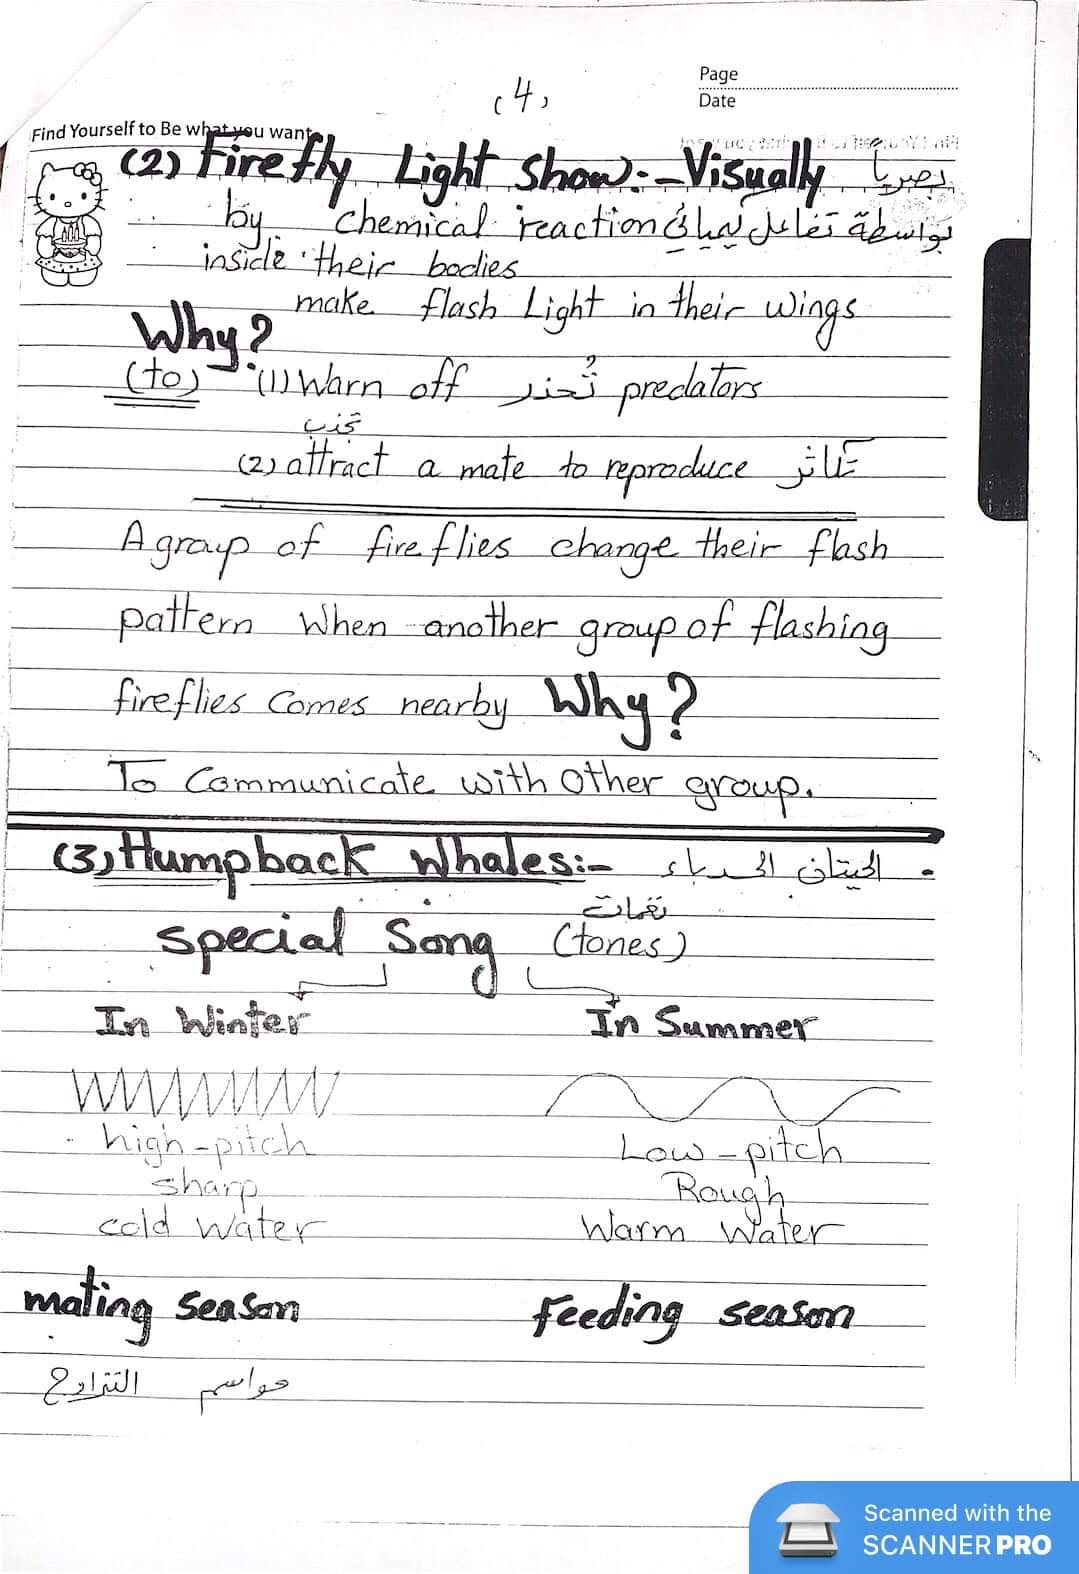 Page
(4)
Date
Find Yourself to Be what you want
(2) Firefly Light Show:- Visually بصرياً
by chemical reaction بواسطة تفاعل كيميائى
inside their bodies
make flash Light in their wings
Why?
(to) (1) Warn off تُحذر predators
تجذب
(2) attract a mate to reproduce تكاثر
A group of fireflies change their flash
pattern When another group of flashing
fireflies Comes nearby Why?
To Communicate with other group.
(3) Humpback Whales:- الحيتان الحدباء
نغمات
special Song (tones)
In Winter In Summer
high-pitch Low-pitch
sharp Rough
cold Water Warm Water
mating season Feeding season
مواسم التزاوج
Scanned with the
SCANNER PRO